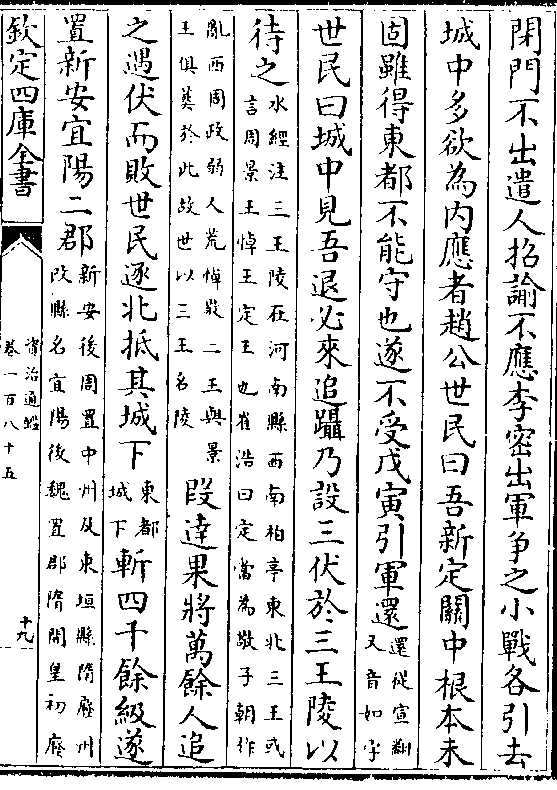 閉門不出遣人招諭不應李密出軍爭之小戰各引去
城中多欲為内應者趙公世民曰吾新定關中根本未
固雖得東都不能守也遂不受戊寅引軍還還從宣翻又音如字
世民曰城中見吾退必來追躡乃設三伏於三王陵以
待之水經注三王陵在河南縣西南柏亭東北三王或言周景王悼王定王也崔浩曰定當為敬子朝作
亂西周政弱人荒悼敬二王與景王俱葬於此故世以三王名陵段達果將萬餘人追
之遇伏而敗世民逐北抵其城下東都城下斬四千餘級遂
置新安宜陽二郡新安後周置中州及東垣縣隋廢州改縣名宜陽後魏置郡隋開皇初廢
欽定四庫全書
資治通鑑
卷一百八十五
十九